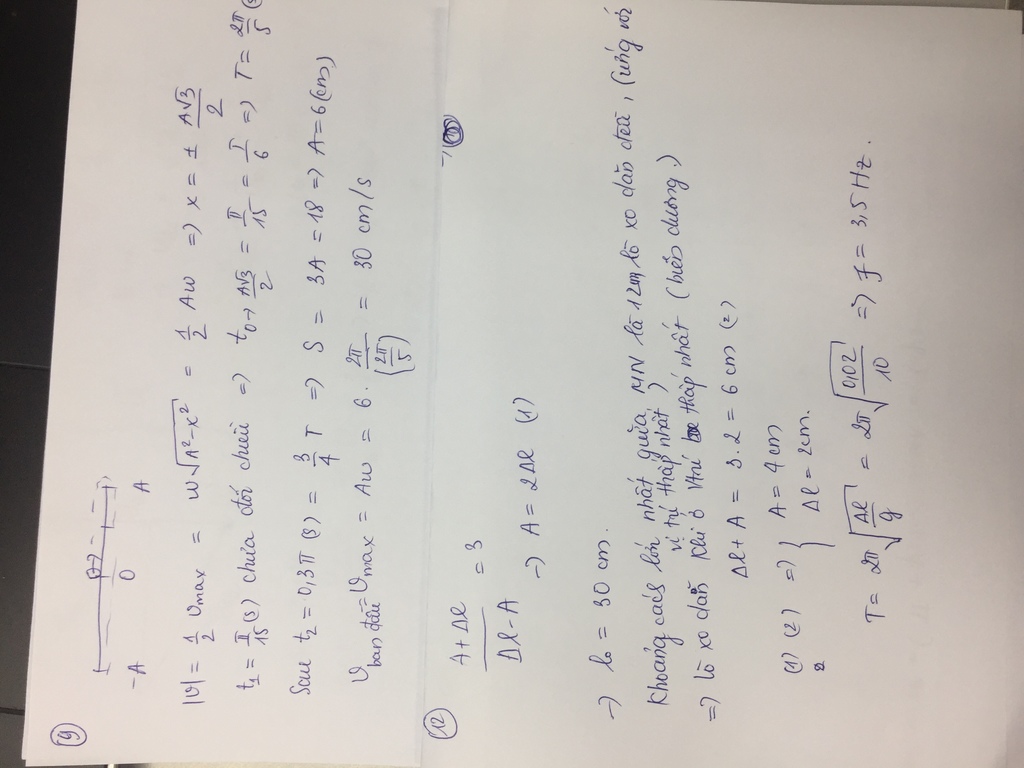 (9)
-A O A
|v| = 1/2 vmax = w√(A²-x²) = 1/2 Aw => x = ± A√3/2
t₁ = π/15 (s) chưa đổi chiều => t 0→A√3/2 = π/15 = T/6 => T = 2π/5 (s)
Sau t₂ = 0,3π (s) = 3/4 T => S = 3A = 18 => A = 6 (cm)
v ban đầu = vmax = Aw = 6 . 2π/(2π/5) = 30 cm/s
(12)
(A+Δl)/(Δl-A) = 3
→ A = 2Δl (1)
→ l₀ = 30 cm.
Khoảng cách lớn nhất giữa MN là 12cm, lò xo dãn đều, (ứng với
vị trí thấp nhất)
=> lò xo dãn khi ở vị trí thấp nhất (biên dương)
Δl + A = 3.2 = 6 cm (2)
(1) (2) => { A = 4 cm
Δl = 2cm.
T = 2π √(Δl/g) = 2π √(0,02/10) => f = 3,5 Hz.